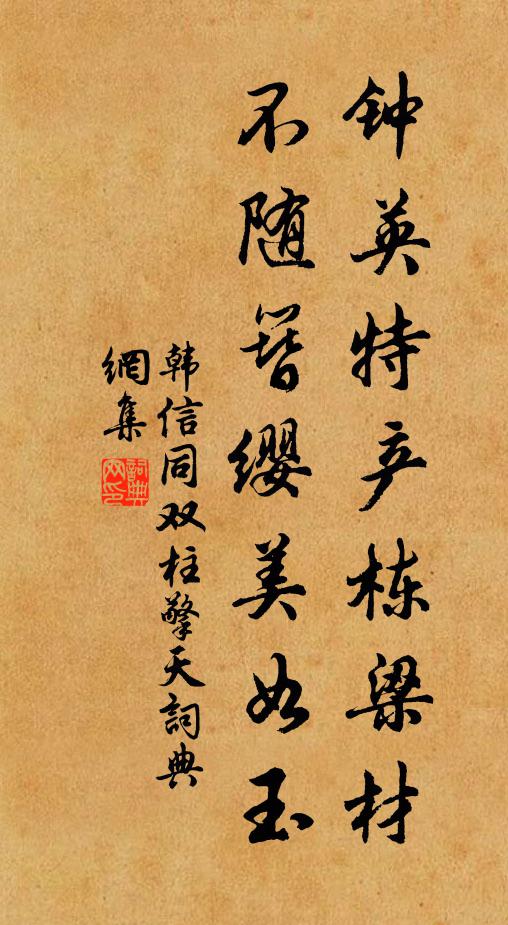 钟英特产栋梁材
不随簪缨美如玉
韩信同双柱擎天詞典
網集
詞典網印